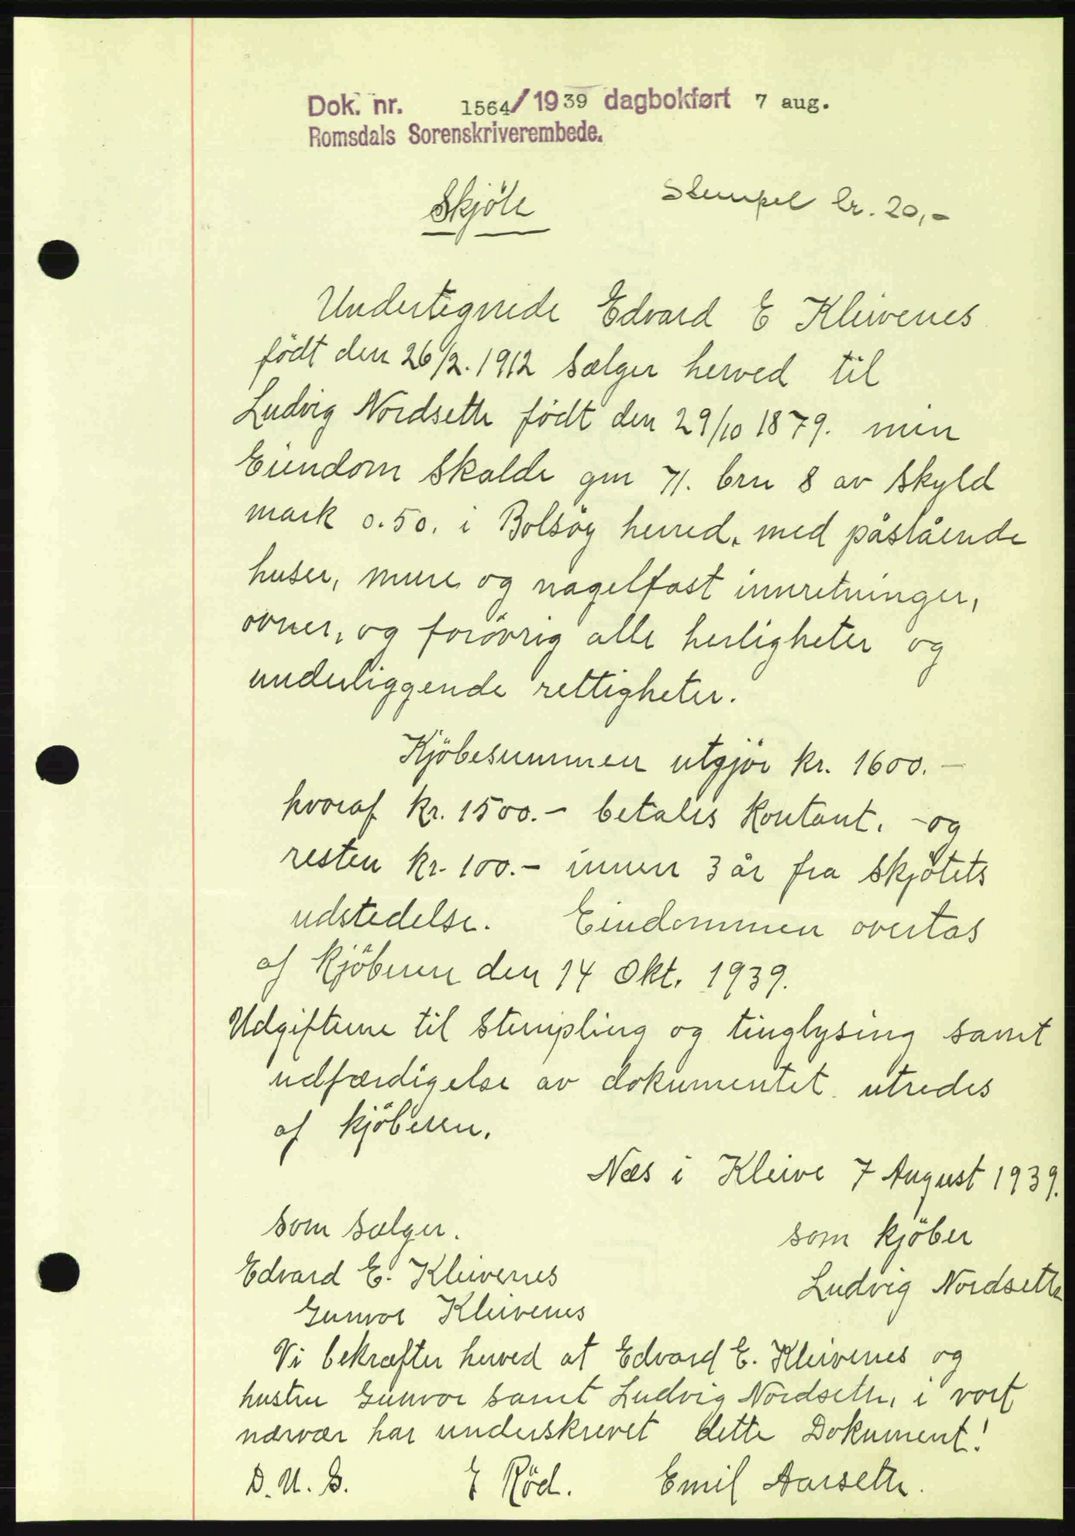 Dok. nr. 1564/1939 dagbokført 7 aug.
Romsdals Sorenskriverembede.
Skjöte
Stempel kr. 20,-
Undertegnede Edvard E Kleivenes
født den 26/2. 1912 sælger herved til
Ludvig Nordseth født den 29/10 1879. min
Eiendom Skalde gm 71. brn 8 av Skyld
mark 0.50. i Bolsöy herred. med påstående
huser, mure og nagelfast innretninger,
ovner, og forövrig alle herligheter og
underliggende rettigheter.
Kjöbesummen utgjör kr. 1600.-
hvoraf kr. 1500.- betales kontant. - og
resten kr. 100.- innen 3 år fra skjötets
udstedelse. Eindommen overtas
af kjöberen den 14 Okt. 1939.
Udgifterne til Stempling og tinglysing samt
udfærdigelse av dokumentet utredes
af kjöberen.
Næs i Kleive 7 August 1939.
som sælger.
som kjöber
Edvard E. Kleivenes
Ludvig Nordseth
Gunvor Kleivenes
Vi bekræfter herved at Edvard E. Kleivenes og
hustru Gunvor samt Ludvig Nordseth, i vort
nærvær har underskrevet dette Dokument!
D. U. S. E Röd. Emil Aarseth.